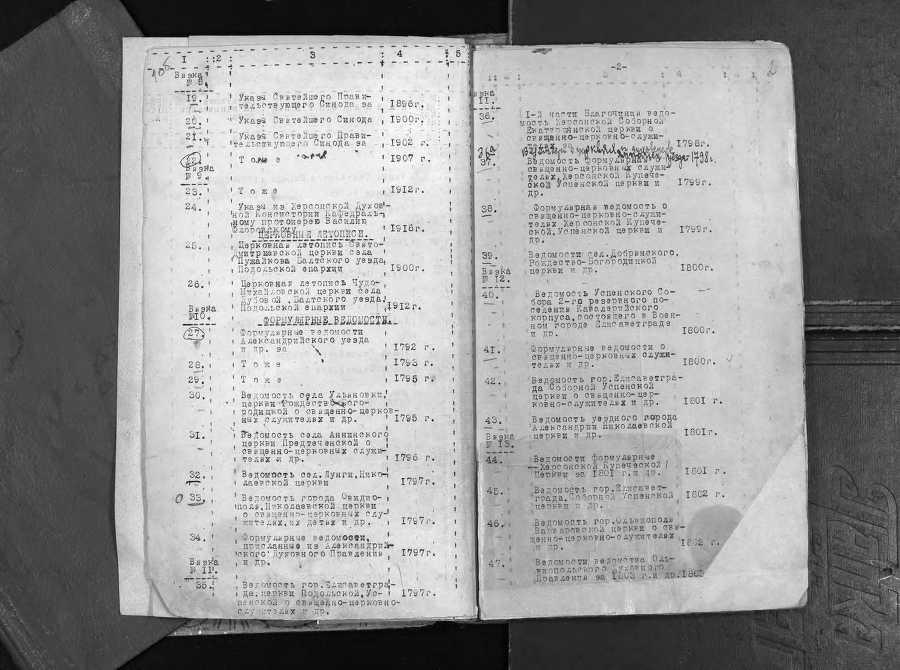 1 2 3 4 5
106
Вязка
№ 8.
19. Указы Святейшего Прави-
тельствующего Синода за 1896г.
20. Указы Святейшего Синода 1900г.
21. Указы Святейшего Прави-
тельствующего Синода за 1902 г.
22. Т о ж е 1907 г.
Вязка
№ 9.
23. Т о ж е 1912г.
24. Указы из Херсонской Духов-
ной Консистории Кафедраль-
ному протоиерею Василию
1918г.
ЦЕРКОВНЫЕ ЛЕТОПИСИ.
25. Церковная летопись Свято-
митриевской церкви села
Пужайкова Балтского уезда
Подольской епархии 1900г.
26. Церковная летопись Чудо-
Михайловской церкви села
Дубовой, Балтского уезда
Подольской епархии 1912г.
Вязка
№10.
ФОРМУЛЯРНЫЕ ВЕДОМОСТИ.
27. Формулярные ведомости
Александрийского уезда
и др. за 1792 г.
28. Т о ж е 1793 г.
29. Т о ж е 1795 г.
30. Ведомость села Ульяновки
церкви Рождество-Бого-
родицкой о священно-церков-
ных служителях и др. 1795 г.
31. Ведомость села Аннинского
церкви Предтеченской о
священно-церковных служи-
телях и др. 1796 г.
32. Ведомость сел. Лунги, Нико-
лаевской церкви 1797г.
33. Ведомость города Овидио-
поля, Николаевской церкви
о священно-церковных слу-
жителях, их детях и др. 1797г.
34. Формулярные ведомости,
присланные из Александрий-
ского Духовного Правления
и др. 1797г.
Вязка
№ 11.
35. Ведомость гор. Елисаветгра-
да, церкви Подольской, Ус-
пенской о священно-церковно-
служителях и др. 1797г.
-2-
2
1 2 3 4
Вязка
11.
36. I-й части Благочиния ведо-
мость Херсонской Соборной
Екатерининской церкви о
священно-церковно-служи-
телях за 1798г.
1798 г.
37. Ведомость формулярная о
священно-церковных служи-
телях, Херсонской Купече-
ской Успенской церкви и
др. 1799г.
38. Формулярная ведомость о
священно-церковно-служи-
телях Херсонской Купече-
ской, Успенской церкви и
др. 1799г.
39. Ведомости сел. Добрянского,
Рождество-Богородицкой
церкви и др. 1800г.
Вязка
№ 12.
40. Ведомость Успенского Со-
бора 2-го резервного по-
селения Кавалерийского
корпуса, состоящего в Воен-
ном городе Елисаветграде
и др. 1800г.
41. Формулярные ведомости о
священно-церковных служи-
телях и др. 1800г.
42. Ведомость гор. Елисаветгра-
да Соборной Успенской
церкви о священно-цер-
ковно-служителях и др. 1801 г.
43. Ведомость уездного города
Александрии Николаевской
церкви и др. 1801г.
Вязка
№ 13.
44. Ведомости формулярные
Херсонской Купеческой
Церкви за 1801 г. и др. 1801 г.
45. Ведомость гор. Елисавет-
града, Соборной Успенской
церкви и др. 1802 г.
46. Ведомость гор. Ольвиополя
церкви о свя-
щенно-церковно-служителях
и др. 1802 г.
47. Ведомости ведомства Оль-
виопольского Духовного
Правления за 1803 г. и др. 1803